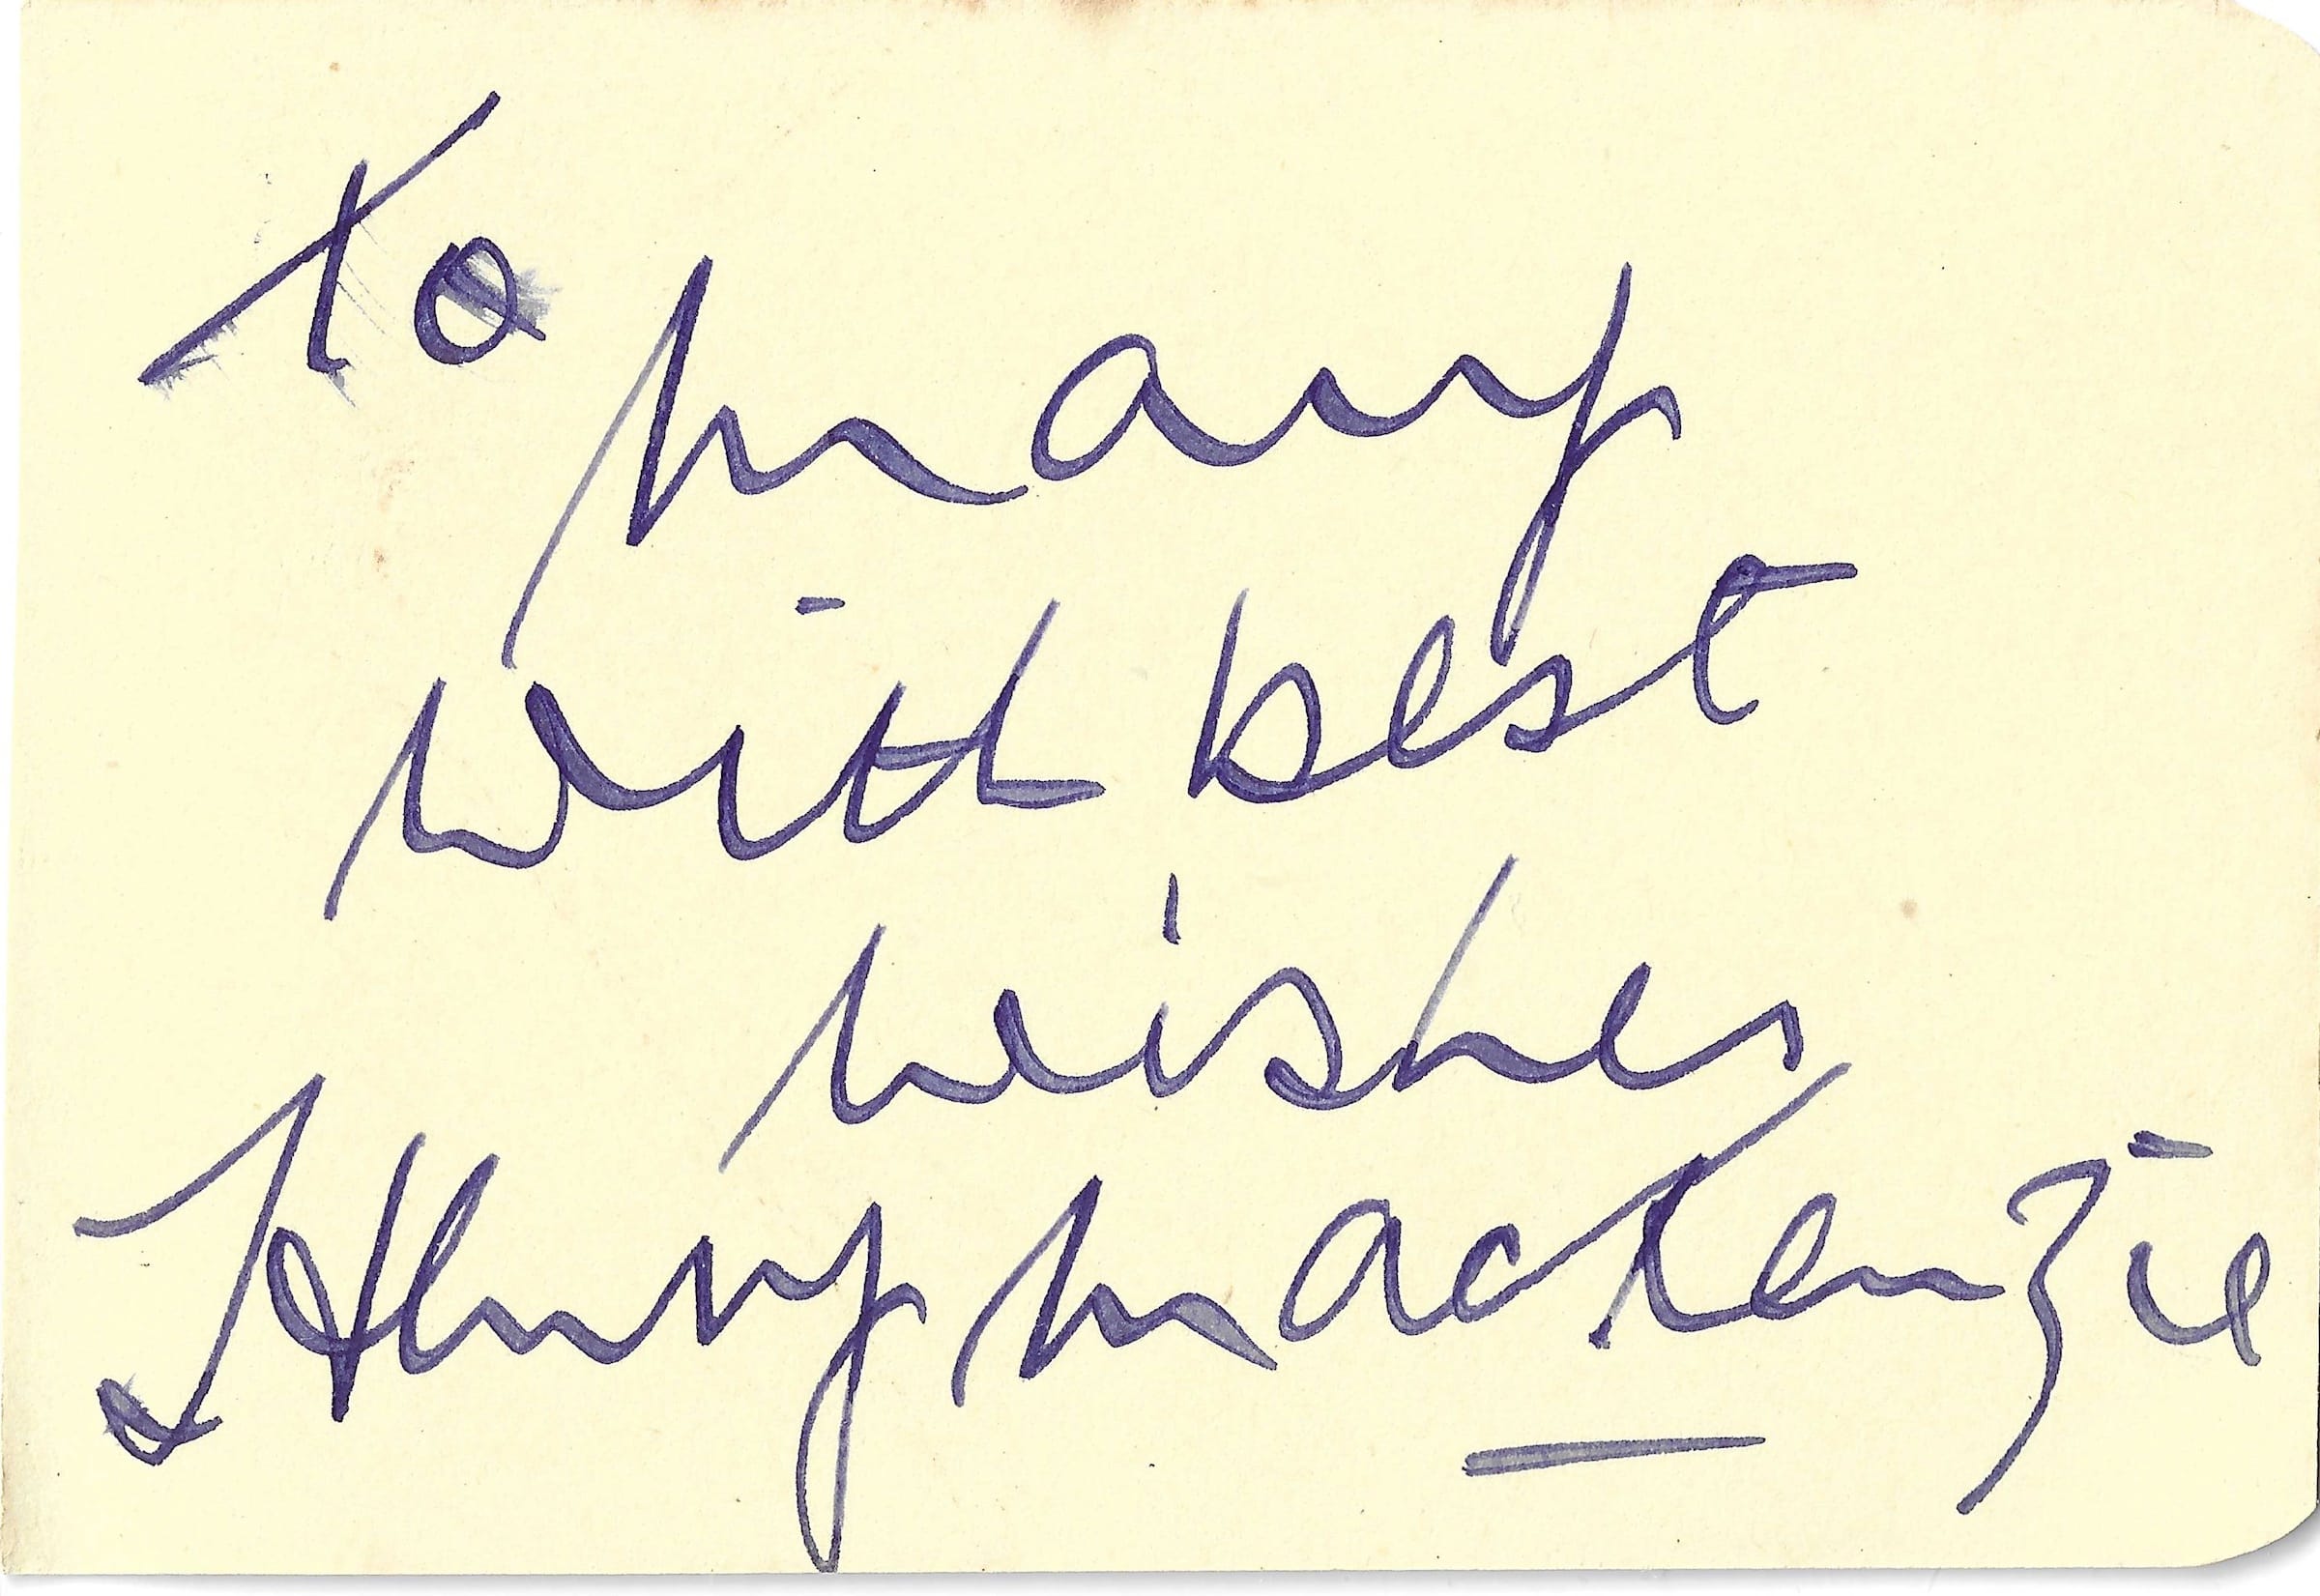 To
Mary
with best
wishes
Henry MacKenzie